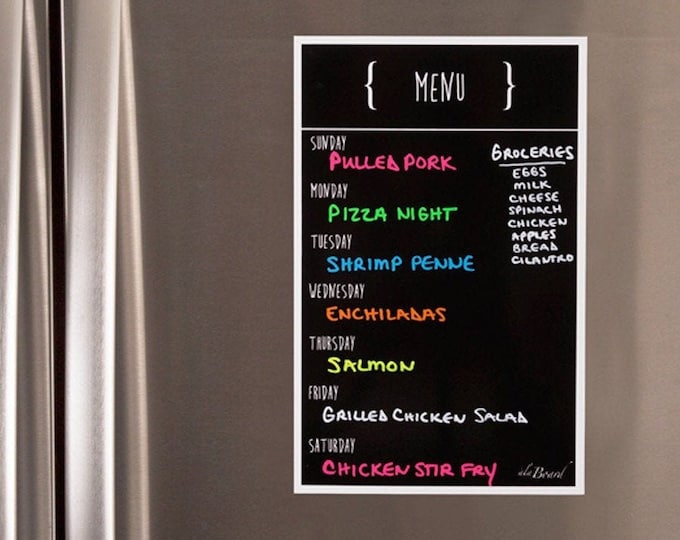 { MENU }
SUNDAY
PULLED PORK
MONDAY
PIZZA NIGHT
TUESDAY
SHRIMP PENNE
WEDNESDAY
ENCHILADAS
THURSDAY
SALMON
FRIDAY
GRILLED CHICKEN SALAD
SATURDAY
CHICKEN STIR FRY
GROCERIES
EGGS
MILK
CHEESE
SPINACH
CHICKEN
APPLES
BREAD
CILANTRO